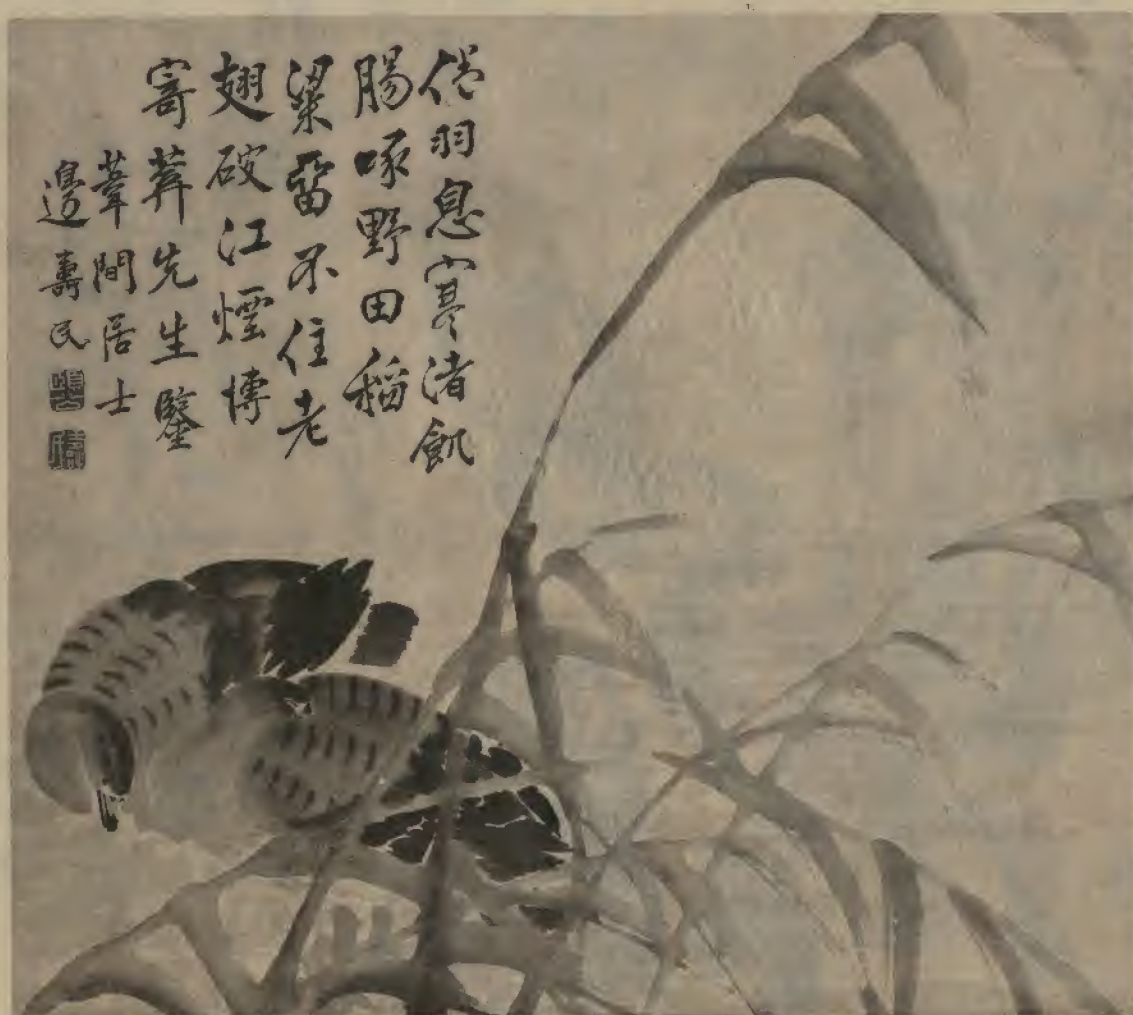 倦羽息寒渚飢
腸啄野田稻
梁留不住老
翅破江煙博
寄葊先生鑒
葦間居士
邊壽民